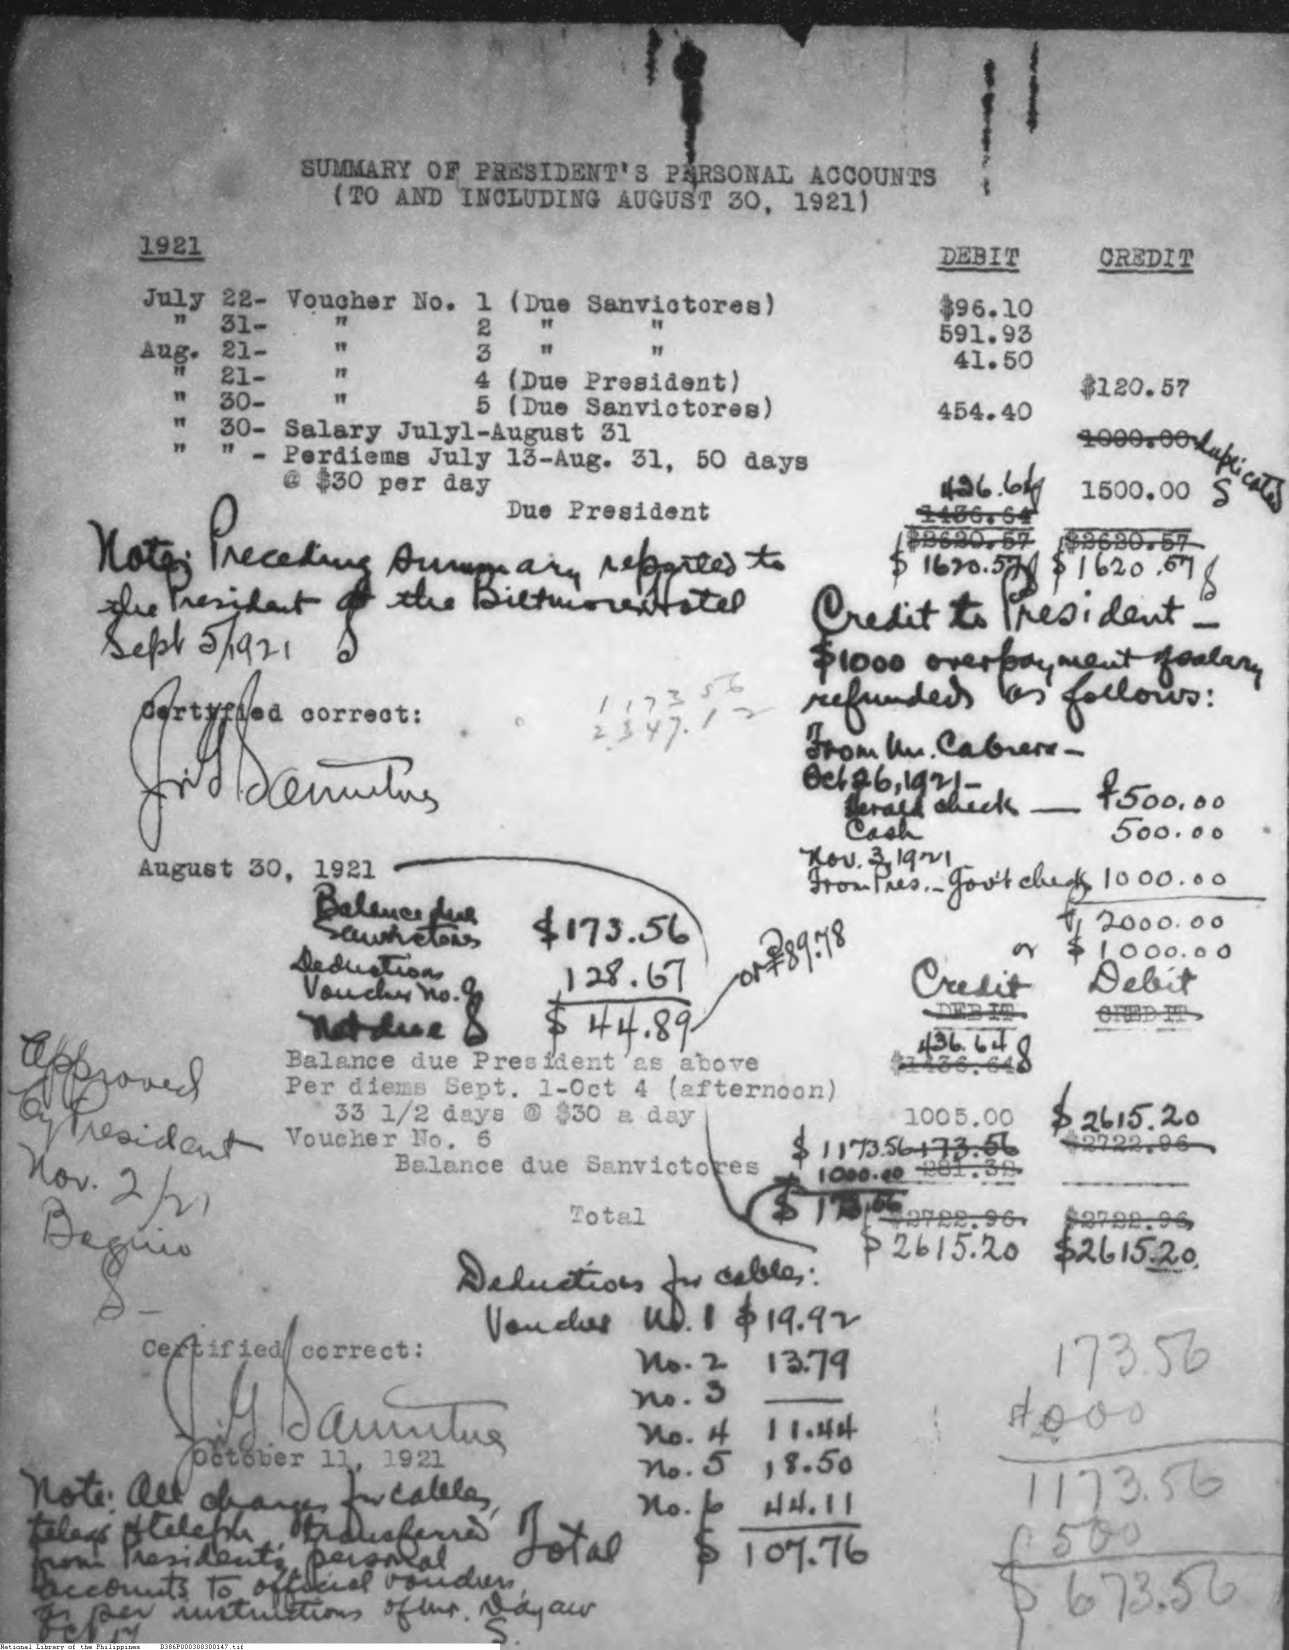 SUMMARY OF PRESIDENT'S PERSONAL ACCOUNTS
(TO AND INCLUDING AUGUST 30, 1921)
1921 DEBIT CREDIT
July 22- Voucher No. 1 (Due Sanvictores) $96.10
" 31- " 2 " " 591.93
Aug. 21- " 3 " " 41.50
" 21- " 4 (Due President) $120.57
" 30- " 5 (Due Sanvictores) 454.40
" 30- Salary July1-August 31 1000.00 Duplicated
" " - Perdiems July 13-Aug. 31, 50 days
@ $30 per day 436.64 1500.00 S
Due President 1436.64
$2620.57 $2620.57
$ 1620.57 $ 1620.57
Note: Preceding summary reported to
the President at the Biltmore Hotel
Sept 5/1921
Credit to President -
$1000 overpayment of salary
refunded as follows:
Certified correct:
1173 56
2347.12
From Mr. Cabrera -
Oct 26, 1921 -
Herald check — ₱500.00
Cash 500.00
Nov. 3, 1921
From Pres. - Gov't check 1000.00
₱ 2000.00
or $ 1000.00
August 30, 1921
Balance due
Sanvictores $173.56
Deductions
Voucher No. 128.67
Net due $ 44.89 or ₱89.78
Credit Debit
DEBIT CREDIT
436.64
Balance due President as above $1436.64
Per diems Sept. 1-Oct 4 (afternoon)
33 1/2 days @ $30 a day 1005.00 $2615.20
Voucher No. 6 $ 1173.56 173.56 $2722.96
Balance due Sanvictores 1000.00 281.32
$ 173.56
Total $2722.96 $2722.96
$2615.20 $2615.20
Approved
by President
Nov. 2/21
Baguio
S -
Deductions for cables:
Voucher No. 1 $19.92
No. 2 13.79
No. 3 —
No. 4 11.44
No. 5 18.50
No. 6 44.11
Total $ 107.76
Certified correct:
October 11, 1921
Note: All charges for cables,
telegs & teleph. transferred
from President's personal
accounts to official vouchers,
as per instructions of Mr. Dayaw
S.
173.56
1000
1173.56
500
$ 673.56
National Library of the Philippines B386P000300300147.tif